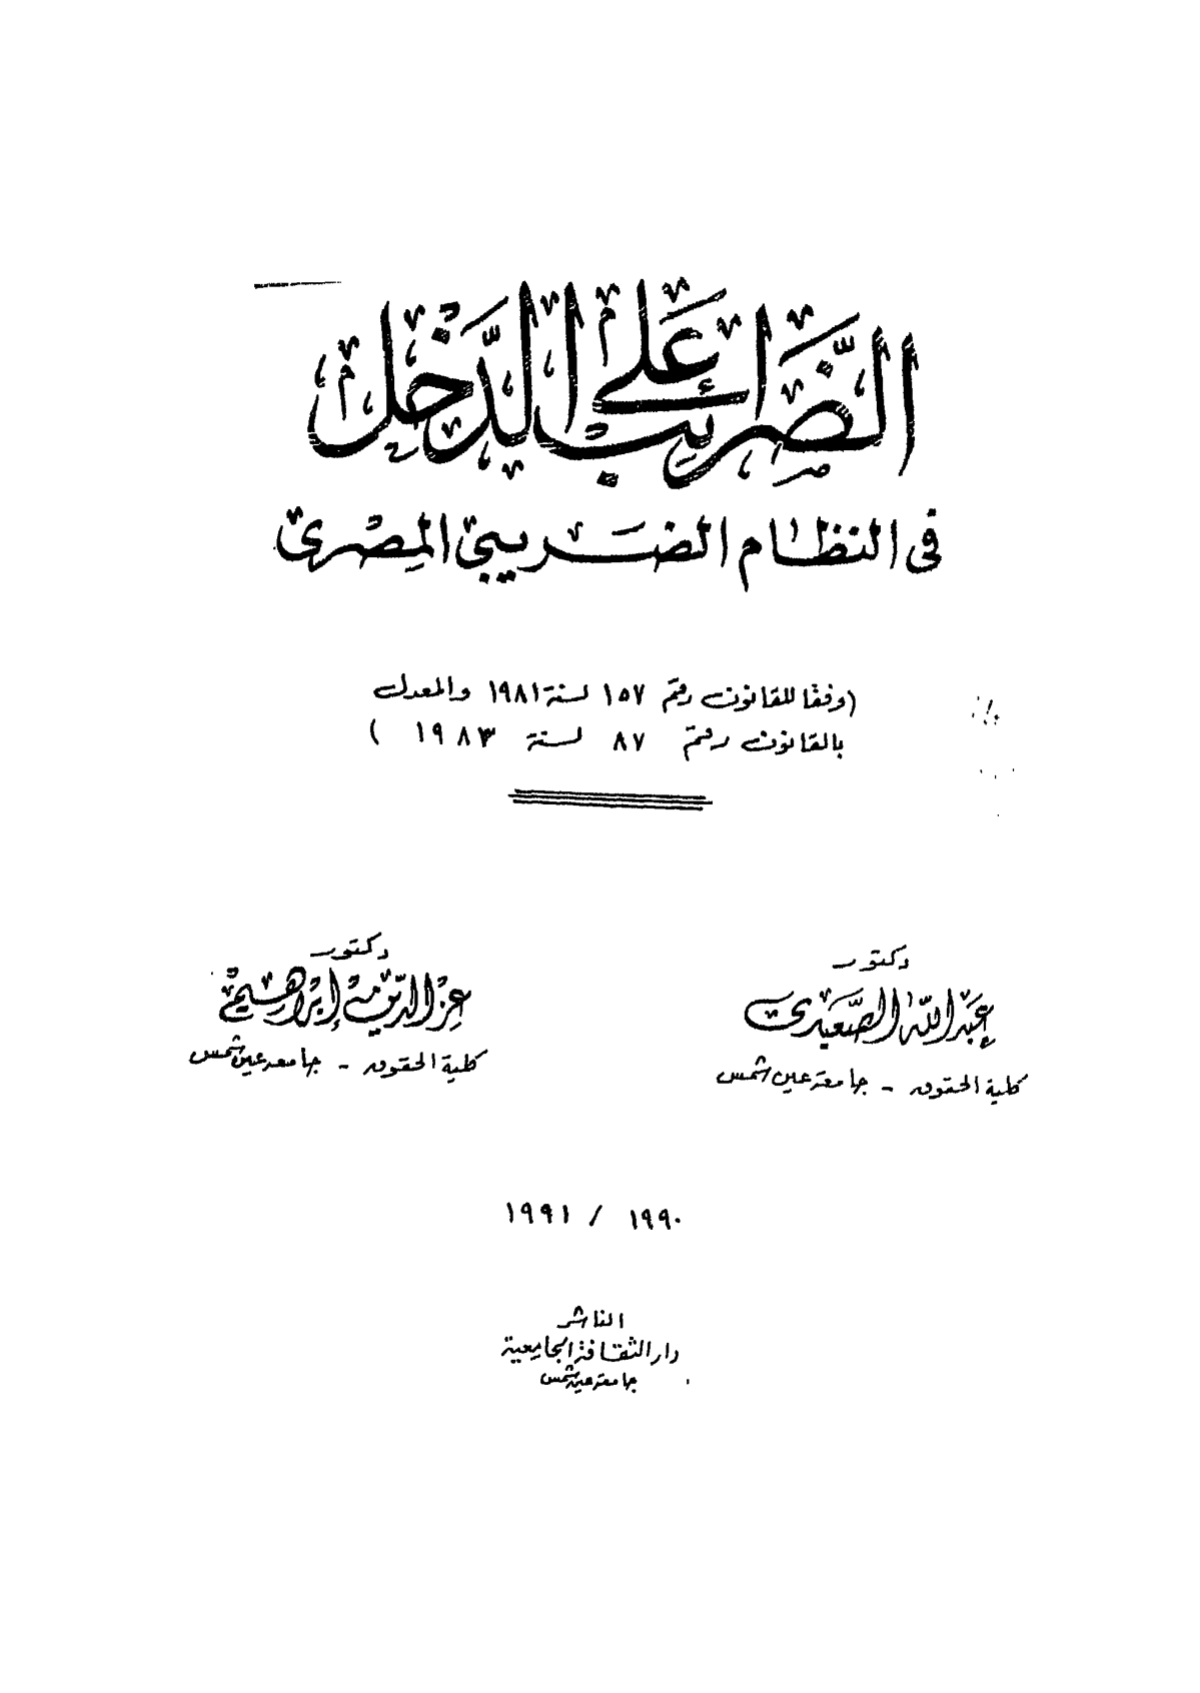 الضَّرائب على الدَّخل
فى النظام الضريبى المصرى
(وفقا للقانون رقم ١٥٧ لسنة ١٩٨١ والمعدل
بالقانون رقم ٨٧ لسنة ١٩٨٣ )
دكتور
عبد الله الصَّعيدى
كلية الحقوق - جامعة عين شمس
دكتور
عز الدين إبراهيم
كلية الحقوق - جامعة عين شمس
١٩٩٠ / ١٩٩١
الناشر
دار الثقافة الجامعية
جامعة عين شمس